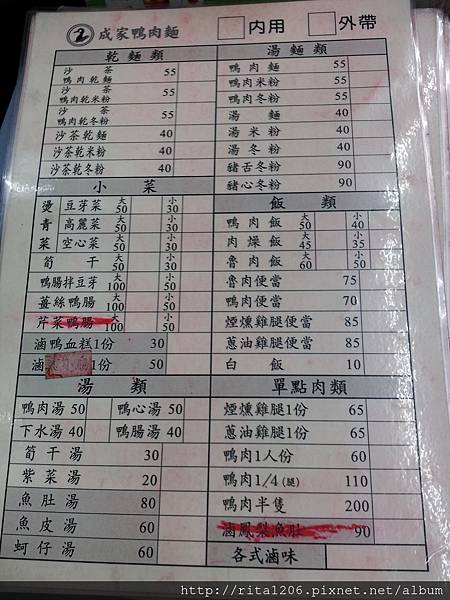 2 成家鴨肉麵 □內用 □外帶
乾麵類
沙茶鴨肉乾麵 55
沙茶鴨肉乾米粉 55
沙茶鴨肉乾冬粉 55
沙茶乾麵 40
沙茶乾米粉 40
沙茶乾冬粉 40
湯麵類
鴨肉麵 55
鴨肉米粉 55
鴨肉冬粉 55
湯麵 40
湯米粉 40
湯冬粉 40
豬舌冬粉 90
豬心冬粉 90
小菜
燙青菜
豆芽菜 大50 小30
高麗菜 大50 小30
空心菜 大50 小30
筍干 大50 小30
鴨腸拌豆芽 大100 小50
薑絲鴨腸 大100 小50
芹菜鴨腸 大100 小50
滷鴨血糕1份 30
滷 50
飯類
鴨肉飯 大50 小40
肉燥飯 大45 小35
魯肉飯 大60 小50
魯肉便當 75
鴨肉便當 70
煙燻雞腿便當 85
蔥油雞腿便當 85
白飯 10
湯類
鴨肉湯 50 鴨心湯 50
下水湯 40 鴨腸湯 40
筍干湯 30
紫菜湯 20
魚肚湯 80
魚皮湯 60
蚵仔湯 60
單點肉類
煙燻雞腿1份 65
蔥油雞腿1份 65
鴨肉1人份 60
鴨肉1/4(腿) 110
鴨肉半隻 200
滷鳳梨魚肚 90
各式滷味
http://rita1206.pixnet.net/album